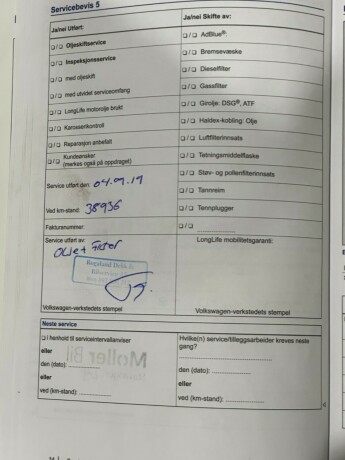 Servicebevis 5
Ja/nei Utført:
❑ / ❑ Oljeskiftservice
❑ / ❑ Inspeksjonsservice
❑ / ❑ med oljeskift
❑ / ❑ med utvidet serviceomfang
❑ / ❑ LongLife motorolje brukt
❑ / ❑ Karosserikontroll
❑ / ❑ Reparasjon anbefalt
❑ / ❑ Kundeønsker
(markeres også på oppdraget)
Service utført den: 04.09.19
Ved km-stand: 38936
Fakturanummer:
Service utført av:
Olje + Filter
Volkswagen-verkstedets stempel
Ja/nei Skifte av:
❑ / ❑ AdBlue®:
❑ / ❑ Bremsevæske
❑ / ❑ Dieselfilter
❑ / ❑ Gassfilter
❑ / ❑ Girolje: DSG®, ATF
❑ / ❑ Haldex-kobling: Olje
❑ / ❑ Luftfilterinnsats
❑ / ❑ Tetningsmiddelflaske
❑ / ❑ Støv- og pollenfilterinnsats
❑ / ❑ Tannreim
❑ / ❑ Tennplugger
❑ / ❑
LongLife mobilitetsgaranti:
Volkswagen-verkstedets stempel
Neste service
❑ I henhold til serviceintervallanviser
eller
den (dato):
eller
ved (km-stand):
Hvilke(n) service/tilleggsarbeider kreves neste
gang?
den (dato):
eller
ved (km-stand):